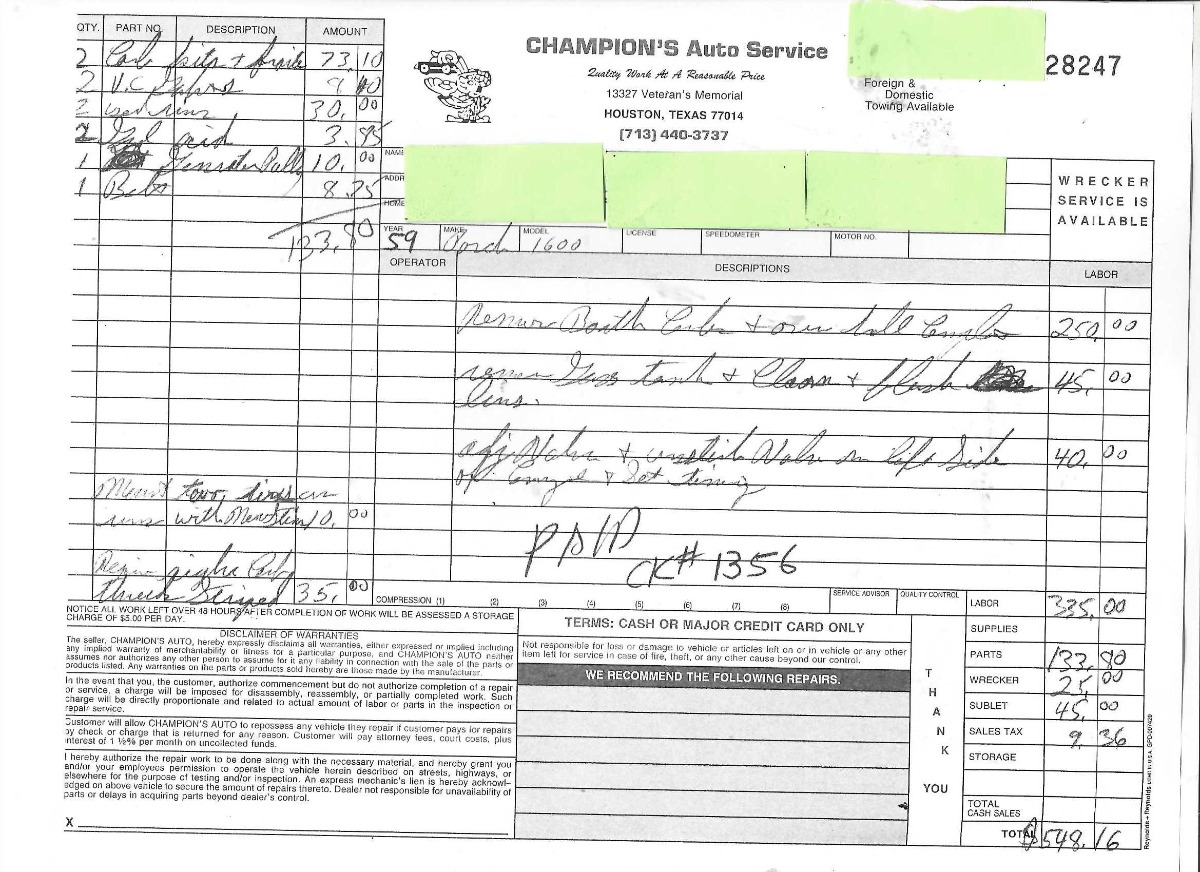 QTY. PART NO. DESCRIPTION AMOUNT
2 Carb kits + 73.10
2 V.C. 8 40
2 used rims 30.00
3.95
1 10.00
1 Belt 8.25
133.80
CHAMPION'S Auto Service
Quality Work At A Reasonable Price
13327 Veteran's Memorial
HOUSTON, TEXAS 77014
(713) 440-3737
Foreign &
Domestic
Towing Available
28247
NAME
ADDR
HOME
WRECKER
SERVICE IS
AVAILABLE
YEAR MAKE MODEL LICENSE SPEEDOMETER MOTOR NO.
59 Porch 1600
OPERATOR DESCRIPTIONS LABOR
Remove Booth Carbs + over hall 250.00
Gass tank + Clean + flush 45.00
lins.
adj Valve + unstick Valve on left Side 40.00
of + Set timing
Mount two tires on
rims with 10.00
35.00
PAID
CK# 1356
COMPRESSION (1) (2) (3) (4) (5) (6) (7) (8) SERVICE ADVISOR QUALITY CONTROL
NOTICE ALL WORK LEFT OVER 48 HOURS AFTER COMPLETION OF WORK WILL BE ASSESSED A STORAGE
CHARGE OF $5.00 PER DAY.
DISCLAIMER OF WARRANTIES
The seller, CHAMPION'S AUTO, hereby expressly disclaims all warranties, either expressed or implied including
any implied warranty of merchantability or fitness for a particular purpose, and CHAMPION'S AUTO neither
assumes nor authorizes any other person to assume for it any liability in connection with the sale of the parts or
products listed. Any warranties on the parts or products sold hereby are those made by the manufacturer.
In the event that you, the customer, authorize commencement but do not authorize completion of a repair
or service, a charge will be imposed for disassembly, reassembly, or partially completed work. Such
charge will be directly proportionate and related to actual amount of labor or parts in the inspection or
repair service.
Customer will allow CHAMPION'S AUTO to repossess any vehicle they repair if customer pays for repairs
by check or charge that is returned for any reason. Customer will pay attorney fees, court costs, plus
interest of 1 ½% per month on uncollected funds.
I hereby authorize the repair work to be done along with the necessary material, and hereby grant you
and/or your employees permission to operate the vehicle herein described on streets, highways, or
elsewhere for the purpose of testing and/or inspection. An express mechanic's lien is hereby acknowl-
edged on above vehicle to secure the amount of repairs thereto. Dealer not responsible for unavailability of
parts or delays in acquiring parts beyond dealer's control.
X
TERMS: CASH OR MAJOR CREDIT CARD ONLY
Not responsible for loss or damage to vehicle or articles left on or in vehicle or any other
item left for service in case of fire, theft, or any other cause beyond our control.
WE RECOMMEND THE FOLLOWING REPAIRS.
THANK
YOU
LABOR 335.00
SUPPLIES
PARTS 133.80
WRECKER 25.00
SUBLET 45.00
SALES TAX 9.36
STORAGE
TOTAL
CASH SALES
TOTAL $548.16